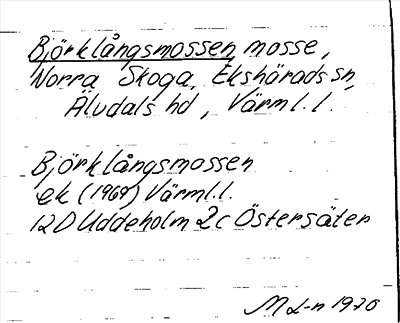 Björklångsmossen, mosse,
Norra Skoga, Ekshärads sn,
Äludals hd, Värml. l.
Björklångsmossen
ek (1969) Värml. l.
12D Uddeholm 2c Östersäter
M L-n 1970